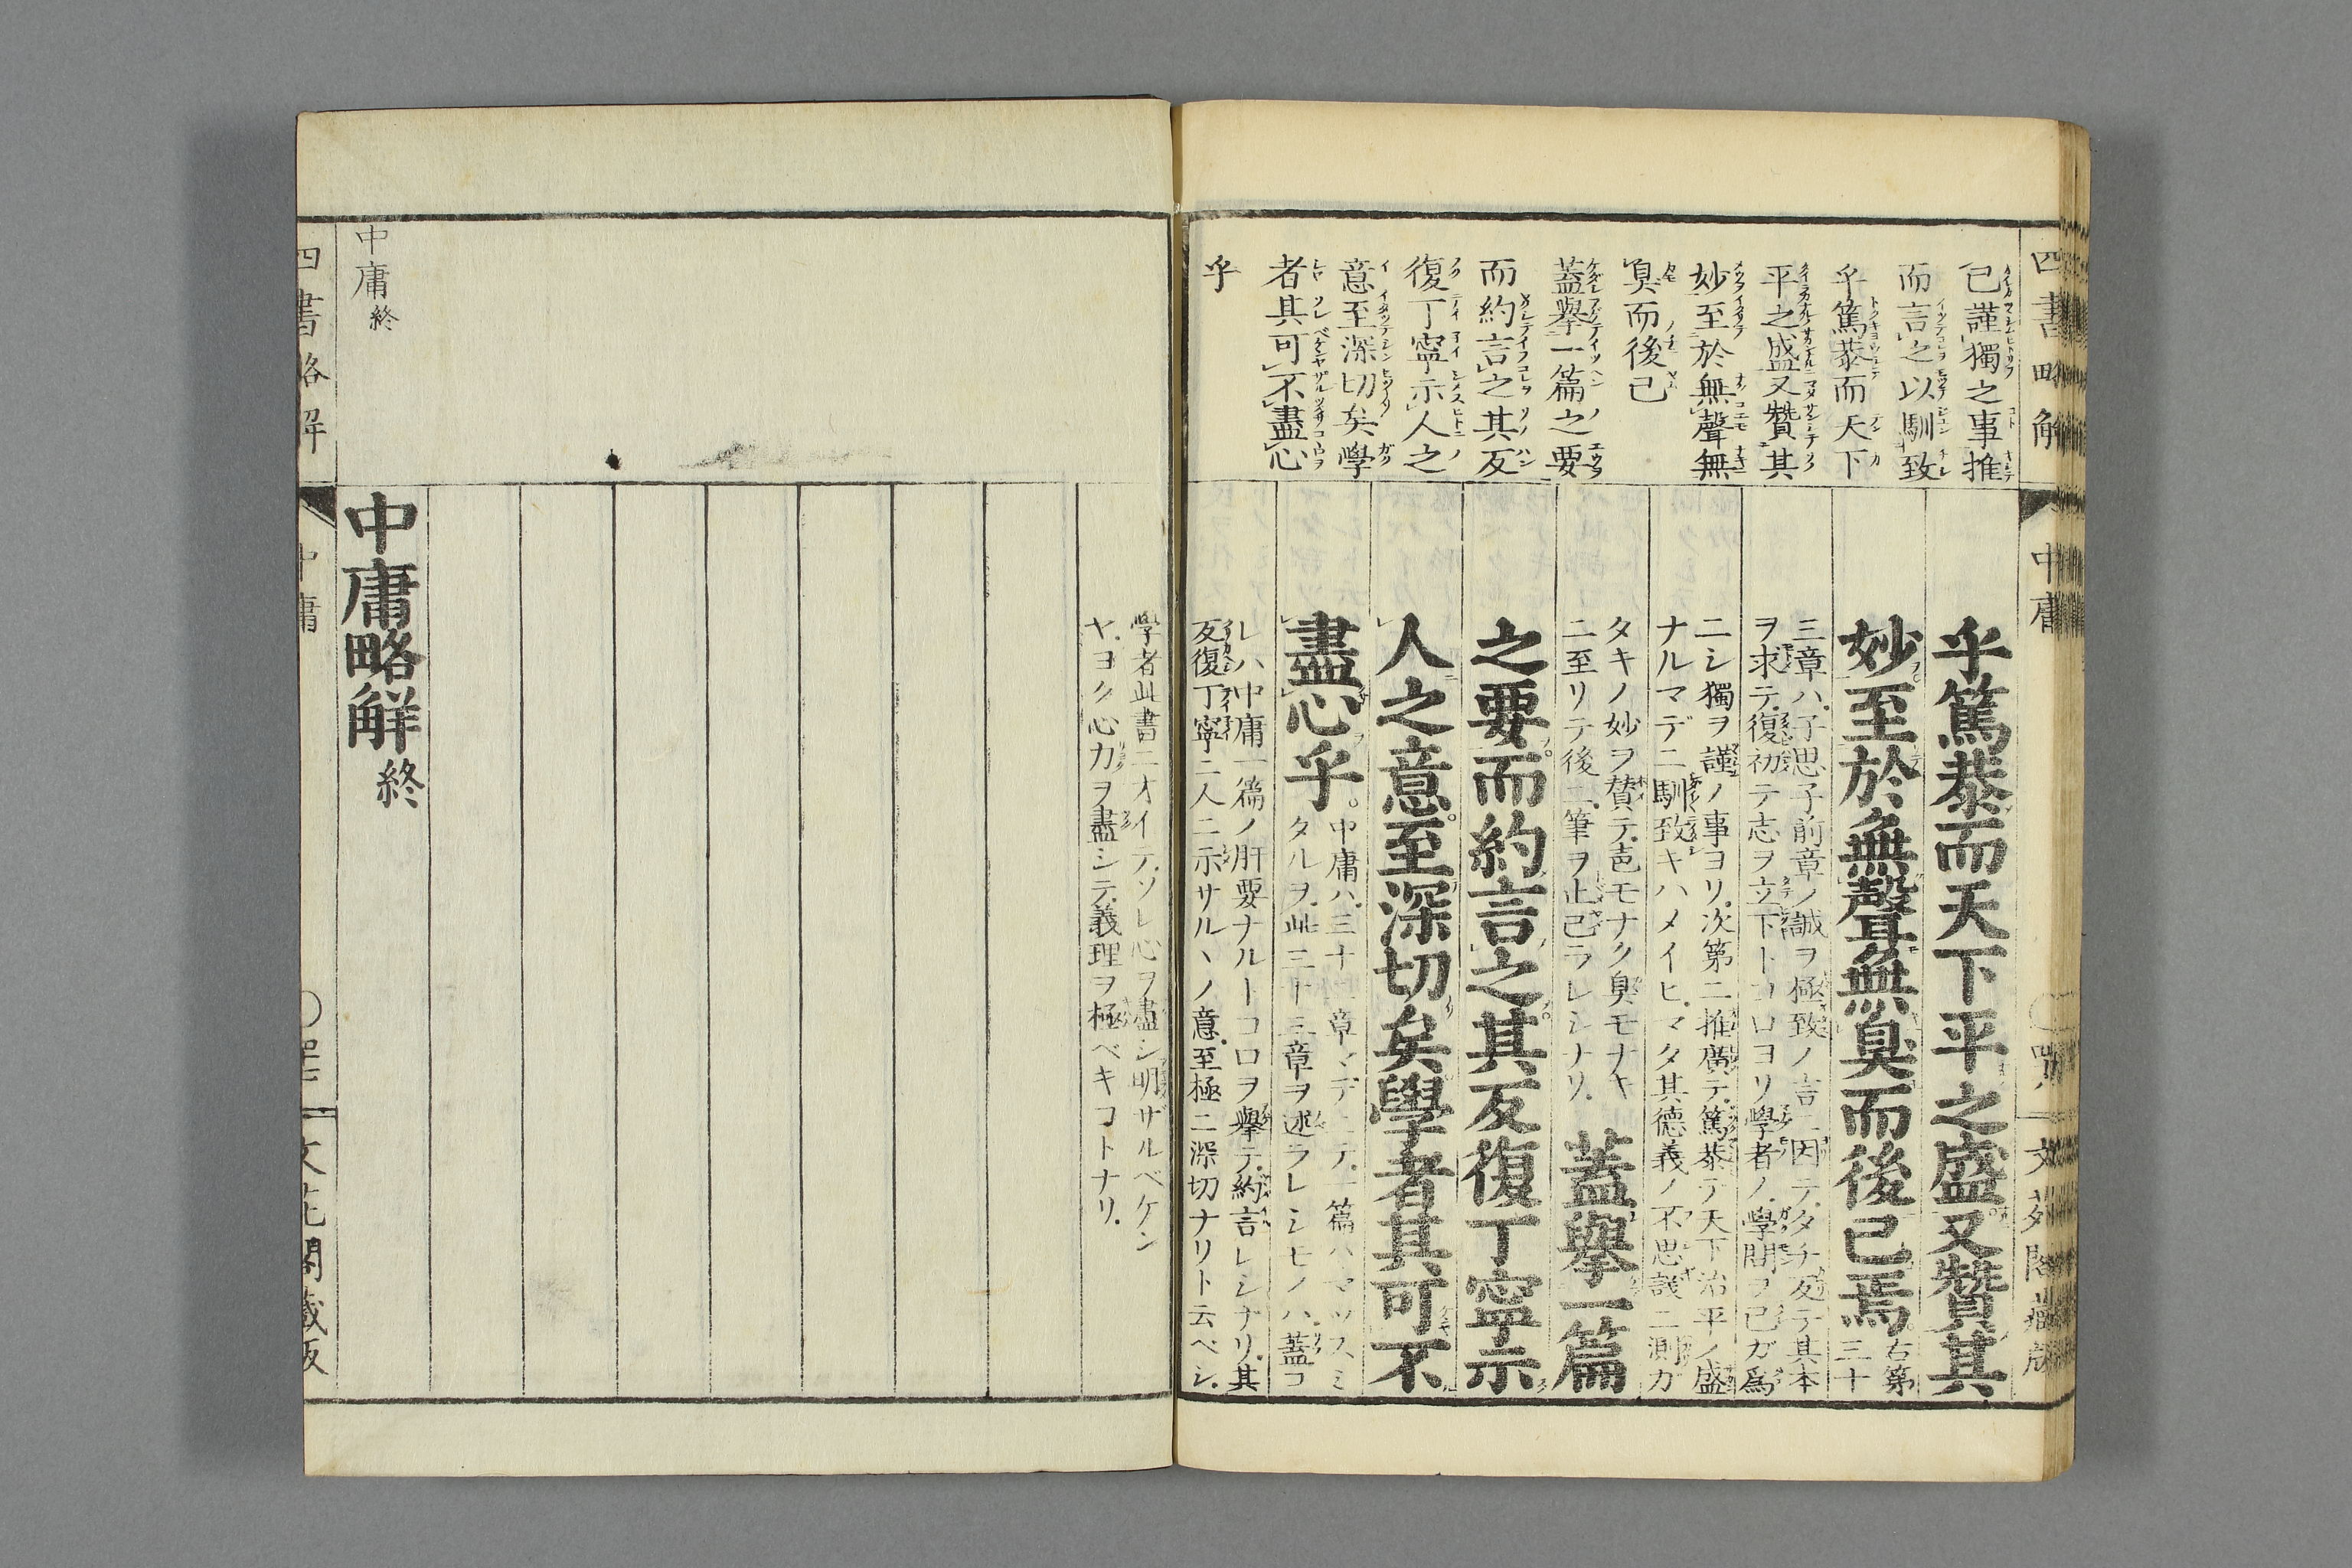 四書略解
中庸
已謹獨之事推
而言之以馴致
乎篤恭而天下
平之盛又贊其
妙至於無聲無
臭而後已
蓋擧一篇之要
而約言之其反
復丁寧示人之
意至深切矣學
者其可不盡心
乎
乎篤恭而天下平之盛又贊其
妙至於無聲無臭而後已焉
右第
三十
三章ハ子思子前章ノ誠ヲ極致ノ言ニ因テタチ反テ其本
ヲ求テ復初テ志ヲ立下トコロヨリ學者ノ學問ヲ已ガ爲
ニシ獨ヲ謹ノ事ヨリ次第ニ推廣テ篤恭テ天下治平ノ盛
ナルマデニ馴致キハメイヒマタ其德義ノ不思議ニ測ガ
タキノ妙ヲ賛テ色モナク臭モナキ
ニ至リテ後ニ筆ヲ止已ラレシナリ
蓋擧一篇
之要而約言之其反復丁寧示
人之意至深切矣學者其可不
盡心乎
中庸ハ三十三章マデニテ一篇ハマツスミ
タルヲ此三十三章ヲ述ラレシモノハ蓋コ
レハ中庸一篇ノ肝要ナルトコロヲ擧テ約言レシナリ其
反復丁寧ニ人ニ示サルヽノ意至極ニ深切ナリト云ベシ
學者此書ニオイテソレ心ヲ盡シ明ザルベケン
ヤヨク心力ヲ盡シテ義理ヲ極ベキコトナリ
中庸終
中庸略解終
四書略解
中庸
文花閣藏版